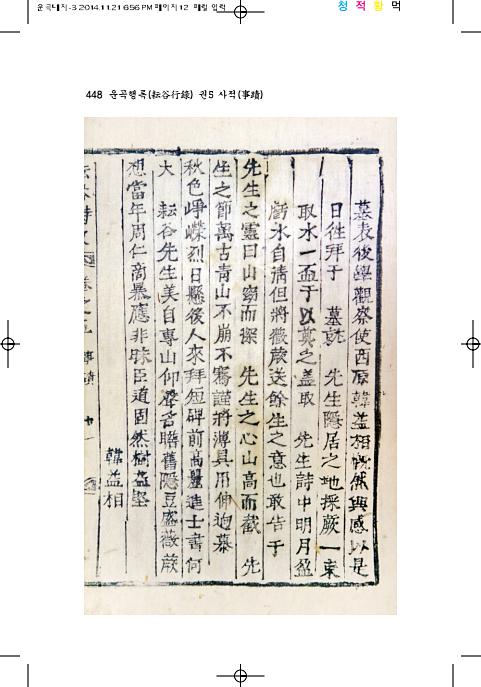 운곡대지-3 2014.11.21 6:56 PM 페이지12
청 적 황 먹
448 운곡행록(耘谷行錄) 권5 사적(事蹟)
墓表後學觀察使西原韓益相慨然興感以是
日往拜于 墓訖 先生隱居之地採蕨一束
取水一盃于以奠之盖取 先生詩中明月盈
虧水自淸但將薇蕨送餘生之意也敢告于
先生之靈曰山窈而深 先生之心山高而截 先
生之節萬古靑山不崩不騫謹將薄具用伸追慕
秋色崢嶸烈日懸後人來拜短碑前高麗進士書何
大 耘谷先生美自專山仰 舍瞻舊隱豆盛薇蕨
想當年周仁商暴應非昧臣道固然樹益堅
韓益相
卷之五 事蹟 十一